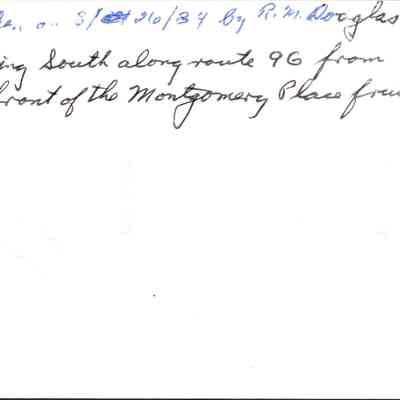 by R. M. Douglas
ing South along route 96 from
front of the Montgomery Place